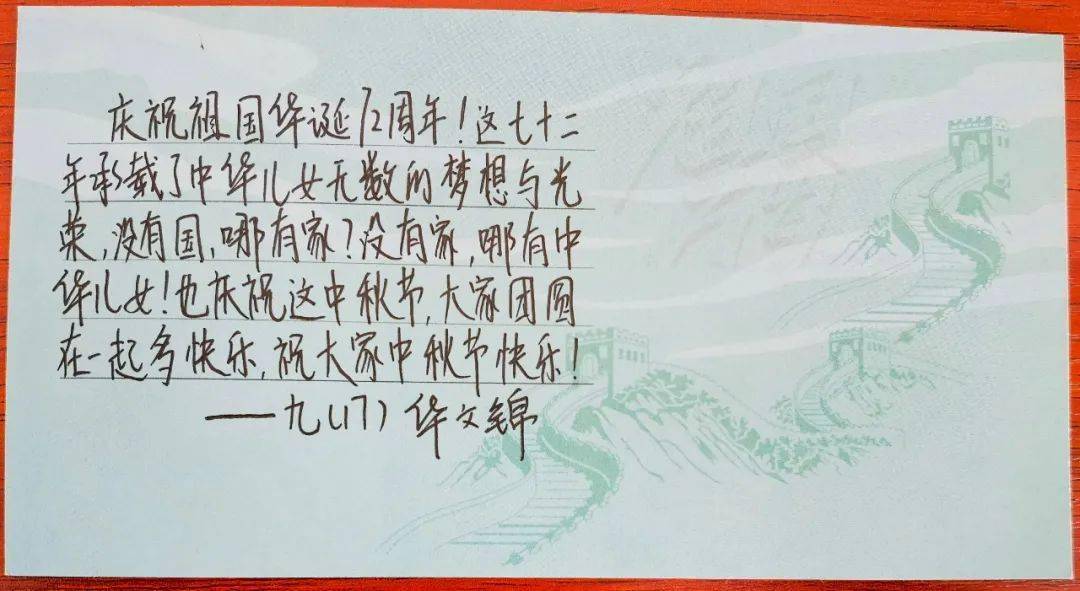 庆祝祖国华诞72周年！这七十二
年承载了中华儿女无数的梦想与光
荣，没有国，哪有家？没有家，哪有中
华儿女！也庆祝这中秋节，大家团圆
在一起多快乐，祝大家中秋节快乐！
——九（17）华文锦